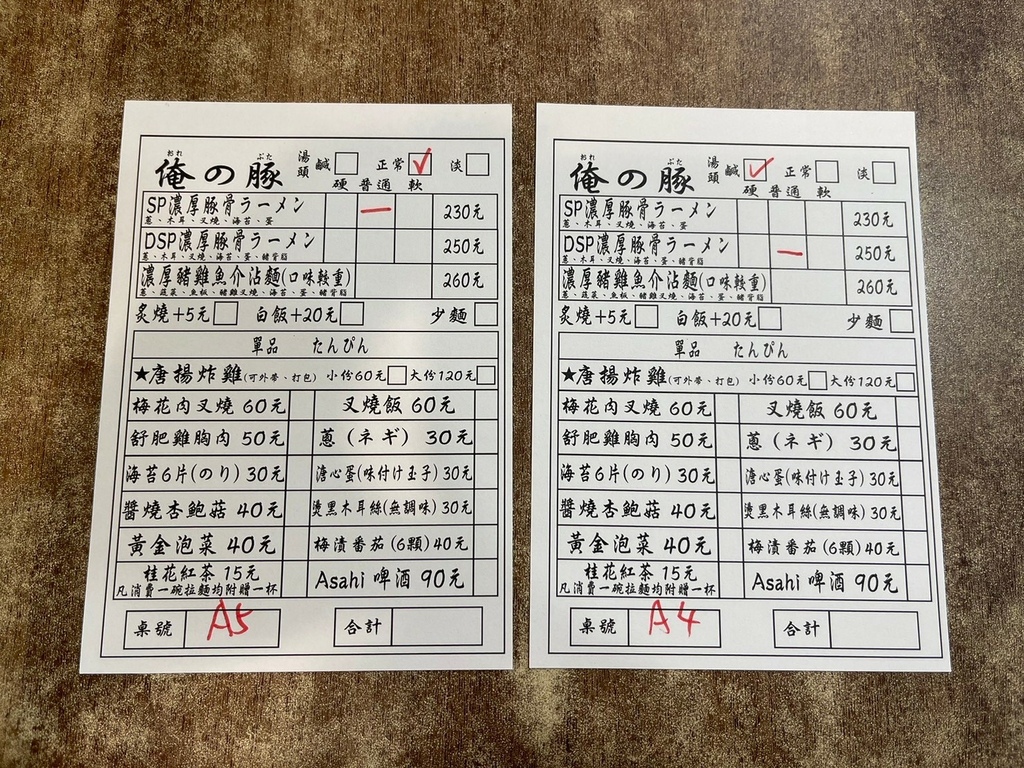 おれ ぶた
俺の豚 湯頭 鹹 正常 ✓ 淡
硬 普通 軟
SP濃厚豚骨ラーメン 一 230元
蔥、木耳、叉燒、海苔、蛋
DSP濃厚豚骨ラーメン 250元
蔥、木耳、叉燒、海苔、蛋、豬背脂
濃厚豬雞魚介沾麵(口味較重) 260元
蔥、蔬菜、魚板、豬雞叉燒、海苔、蛋、豬背脂
炙燒+5元 白飯+20元 少麵
單品 たんぴん
★唐揚炸雞(可外帶、打包) 小份60元 大份120元
梅花肉叉燒 60元 叉燒飯 60元
舒肥雞胸肉 50元 蔥(ネギ) 30元
海苔6片(のり) 30元 溏心蛋(味付け玉子) 30元
醬燒杏鮑菇 40元 燙黑木耳絲(無調味) 30元
黃金泡菜 40元 梅漬番茄(6顆)40元
桂花紅茶 15元 Asahi 啤酒 90元
凡消費一碗拉麵均附贈一杯
桌號 A5 合計
おれ ぶた
俺の豚 湯頭 鹹 ✓ 正常 淡
硬 普通 軟
SP濃厚豚骨ラーメン 230元
蔥、木耳、叉燒、海苔、蛋
DSP濃厚豚骨ラーメン 一 250元
蔥、木耳、叉燒、海苔、蛋、豬背脂
濃厚豬雞魚介沾麵(口味較重) 260元
蔥、蔬菜、魚板、豬雞叉燒、海苔、蛋、豬背脂
炙燒+5元 白飯+20元 少麵
單品 たんぴん
★唐揚炸雞(可外帶、打包) 小份60元 大份120元
梅花肉叉燒 60元 叉燒飯 60元
舒肥雞胸肉 50元 蔥(ネギ) 30元
海苔6片(のり) 30元 溏心蛋(味付け玉子) 30元
醬燒杏鮑菇 40元 燙黑木耳絲(無調味) 30元
黃金泡菜 40元 梅漬番茄(6顆)40元
桂花紅茶 15元 Asahi 啤酒 90元
凡消費一碗拉麵均附贈一杯
桌號 A4 合計